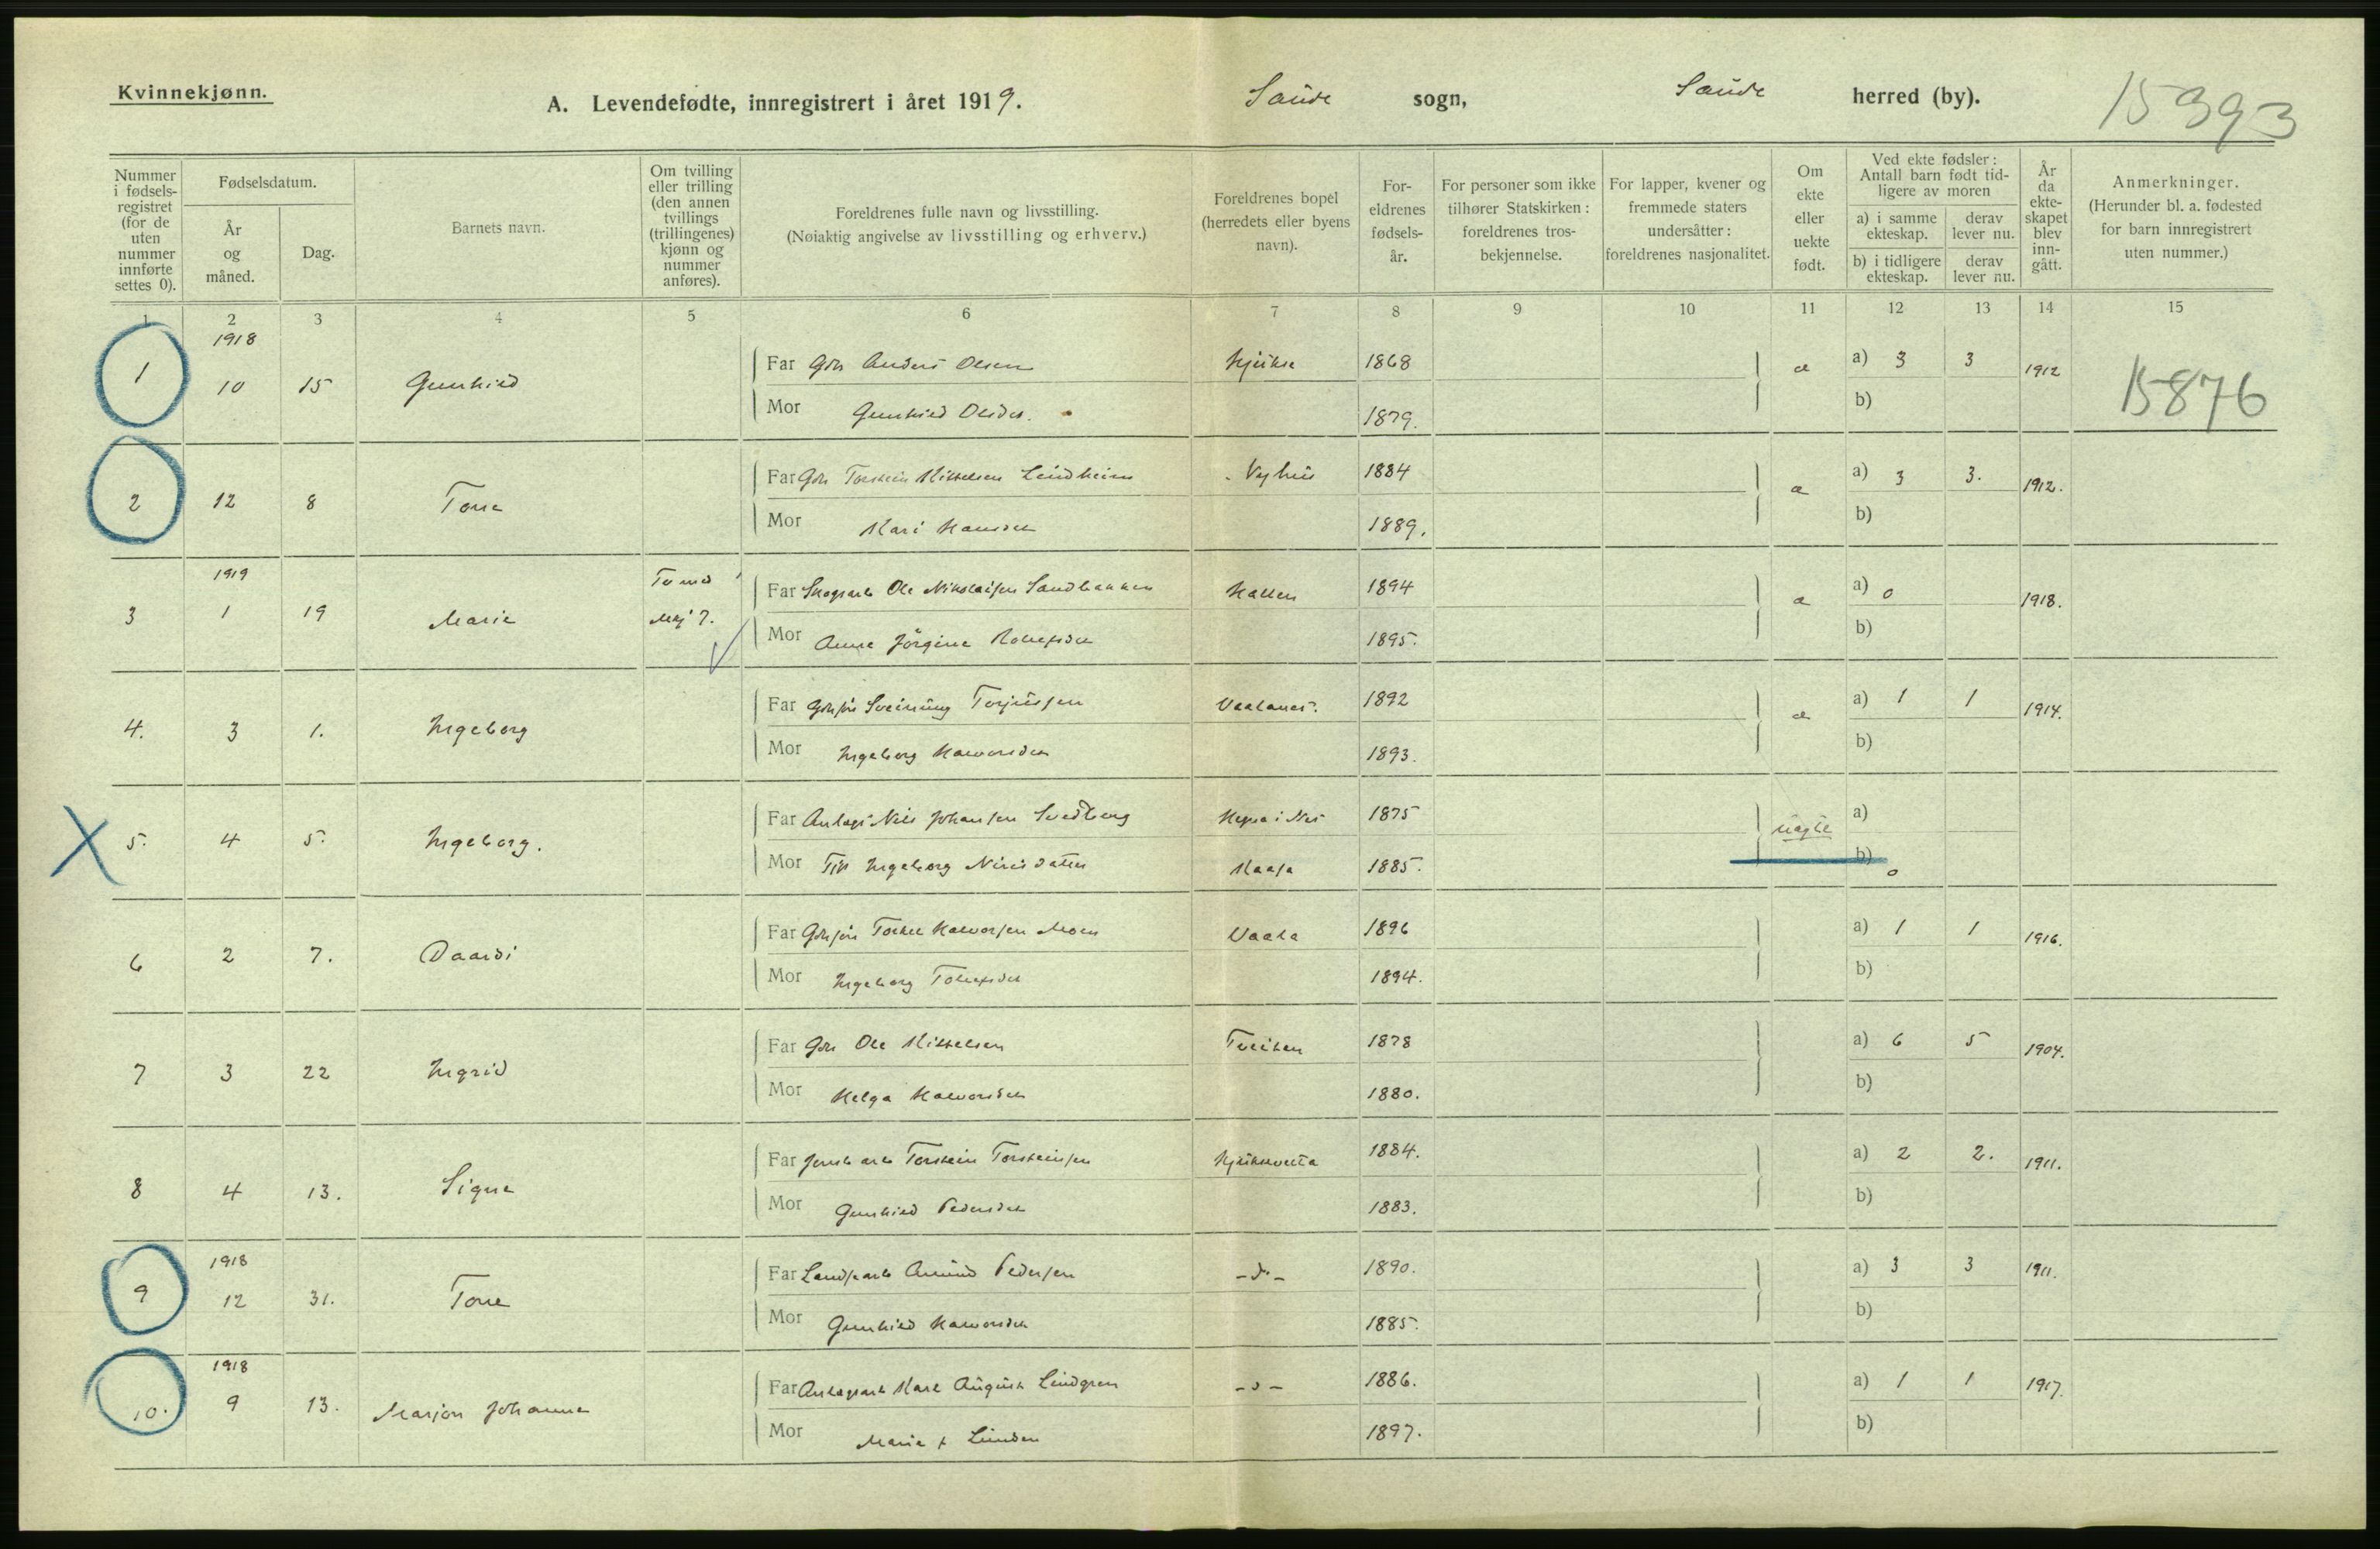 Kvinnekjønn.
A. Levendefødte, innregistrert i året 1919.
Saude sogn,
Saude herred (by).
15393
Nummer i fødsels-registret (for de uten nummer innførte settes 0).
Fødselsdatum.
År og måned.
Dag.
Barnets navn.
Om tvilling eller trilling (den annen tvillings (trillingenes) kjønn og nummer anføres).
Foreldrenes fulle navn og livsstilling.
(Nøiaktig angivelse av livsstilling og erhverv.)
Foreldrenes bopel (herredets eller byens navn).
For-eldrenes fødsels-år.
For personer som ikke tilhører Statskirken: foreldrenes tros-bekjennelse.
For lapper, kvener og fremmede staters undersåtter: foreldrenes nasjonalitet.
Om ekte eller uekte født.
Ved ekte fødsler: Antall barn født tid-ligere av moren
a) i samme ekteskap.
derav lever nu.
b) i tidligere ekteskap.
derav lever nu.
År da ekte-skapet blev inn-gått.
Anmerkninger.
(Herunder bl. a. fødested for barn innregistrert uten nummer.)
1 2 3 4 5 6 7 8 9 10 11 12 13 14 15
1918
1 10 15 Gunhild Far Gbr Anders Olsen 1868 a) 3 3 1912 15876
Mor Gunhild Olsdtr. 1879. b)
2 12 8 Tone Far Gbr Torstein Kittelsen Lindheim 1884 a) 3 3. 1912.
Mor Kari Hansdtr 1889. b)
1919
3 1 19 Marie Far Skogsarb Ole Nikolaisen Sandbakken 1894 a) 0 1918.
Mor Anne Jörgine 1895. b)
4. 3 1. Ingeborg Far Sveinung Terjussen 1892 a) 1 1 1914.
Mor Ingeborg Halvorsdtr 1893. b)
5. 4 5. Ingeborg. Far Nils Johansen Svedberg 1875 uegte a)
Mor Ingeborg Kaasa 1885. b) 0
6 2 7. Daardi Far Halvorsen Moen Vaala 1896 a) 1 1 1916.
Mor Ingeborg Tollefsdtr 1894. b)
7 3 22 Ingrid Far Gbr Ole Kittelsen Tveiten 1878 a) 6 5 1904.
Mor Helga Halvorsdtr 1880. b)
8 4 13. Signe Far Torstein Torsteinsen 1884. a) 2 2. 1911.
Mor Gunhild Pedersdtr 1883. b)
1918
9 12 31. Tone Far Amund Pedersen -d- 1890. a) 3 3 1911.
Mor Gunhild Halvorsdtr 1885. b)
1918
10. 9 13. Marjon Johanne Far Karl August Lindgren -d- 1886. a) 1 1 1917.
Mor Marie 1897. b)